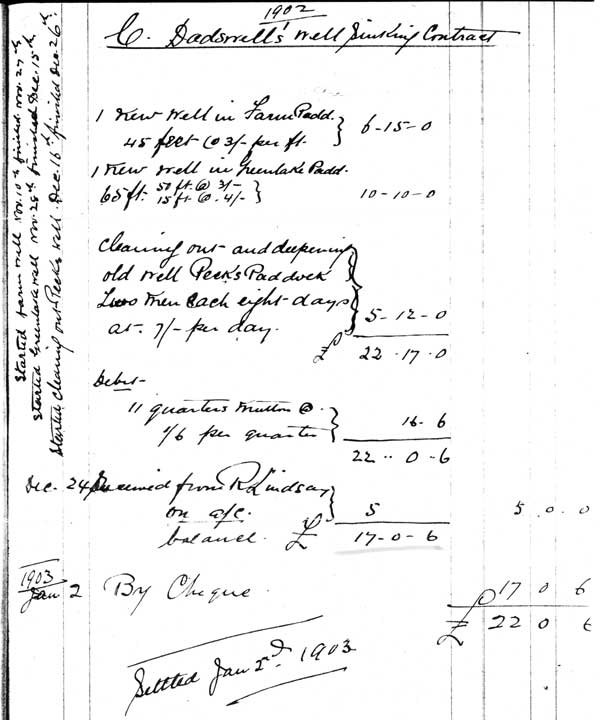 1902
C. Dadswell's Well Sinking Contract
1 New Well in Farm Padd.
45 feet @ 3/- per ft. } 6-15-0
1 New Well in Greenlake Padd.
65 ft. 50 ft. @ 3/-
15 ft @ 4/- } 10-10-0
Cleaning out and deepening
old well Peck's Paddock
Two Men Each eight days
at 7/- per day. } 5-12-0
£ 22.17.0
Debit-
11 quarters Mutton @
1/6 per quarter } 16-6
22..0.6
Dec. 24 Received from R Lindsay
on a/c. } 5 5.0.0
balance. £ 17-0-6
1903
Jan 2 By Cheque 17 0 6
£ 22 0 6
Settled Jan 2nd 1903
Started Farm Well Nov. 10th finished Nov. 27th
Started Greenlake Well Nov. 28th finished Dec. 15th
Started cleaning out Peck's Well Dec. 16th finished Dec. 26th